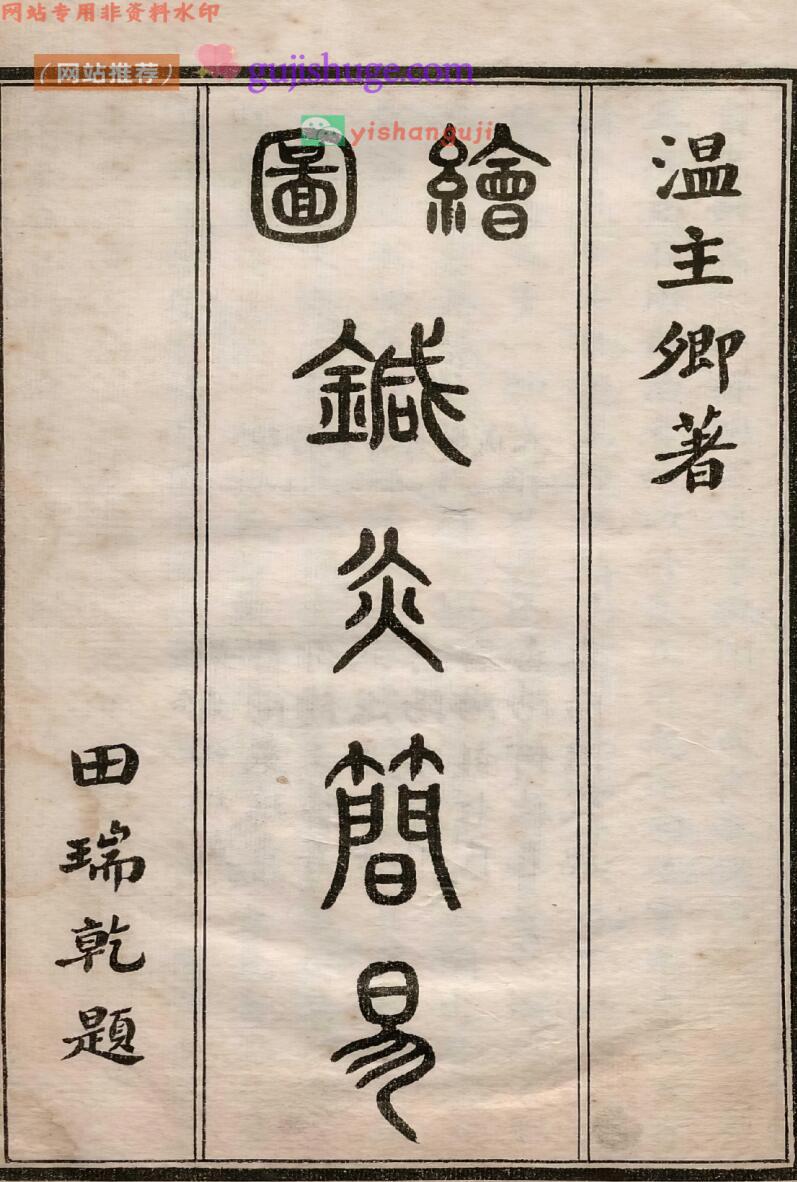 网站专用非资料水印
（网站推荐）
gujishuge.com
yishanguji
温主卿著
繪圖
鍼灸簡易
田瑞乾題